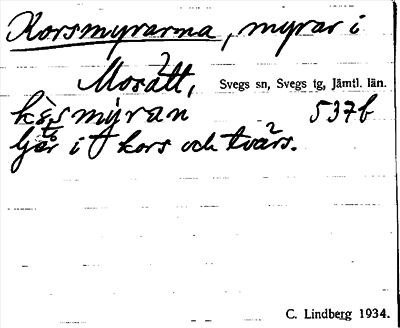 Korsmyrarna, myrar i
Mosätt, Svegs sn, Svegs tg, Jämtl. län.
myran 537b
i kors och tvärs.
C. Lindberg 1934.